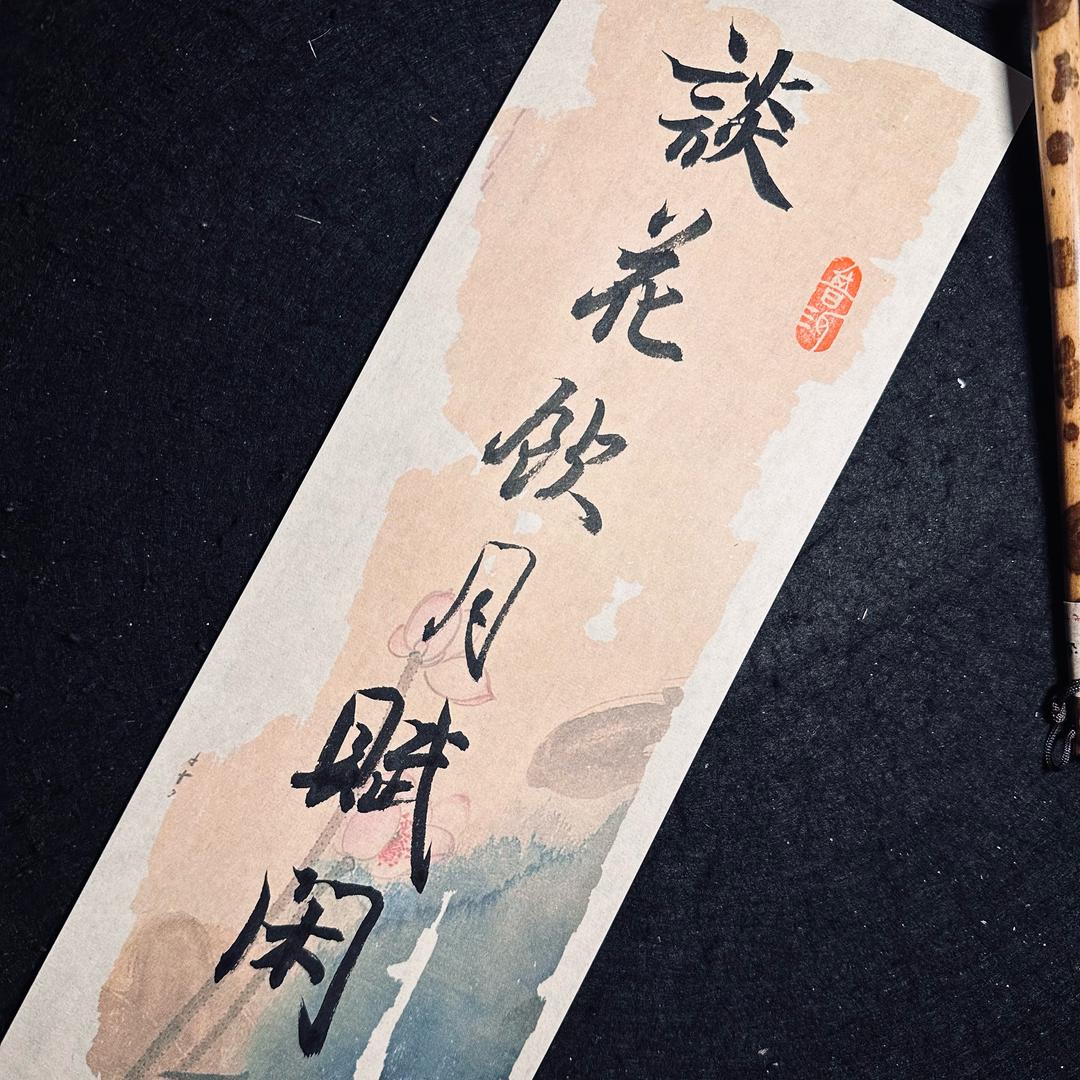 談花飲月賦闲